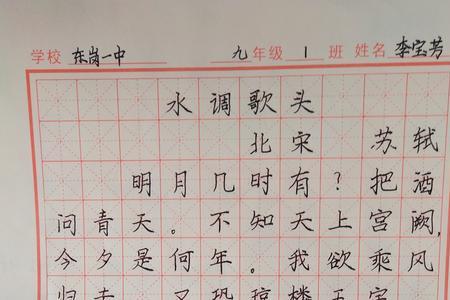 学校 东岗一中 九年级 1 班 姓名 李宝芳
水调歌头
北宋 苏轼
明月几时有？把酒
问青天。不知天上宫阙，
今夕是何年。我欲乘风
归去 又恐琼楼玉宇